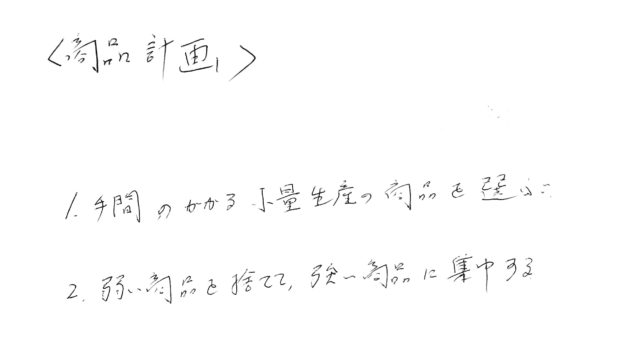 〈商品計画〉
1. 手間のかかる小量生産の商品を選ぶ
2. 弱い商品を捨てて, 強い商品に集中する